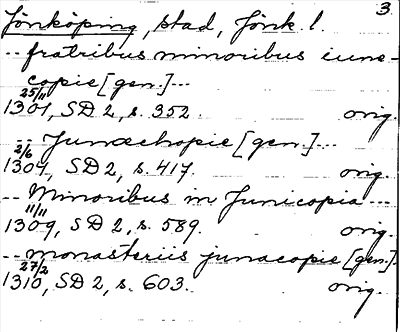 3.
Jönköping, stad, Jönk. l.
-- fratribus minoribus iune-
copie [gen.] --
25/11 1301, SD 2, s. 352. orig.
-- Junæchopie [gen.] --
2/6 1304, SD 2, s. 417. orig.
-- Minoribus in Junicopia --
11/11 1309, SD 2, s. 589. orig.
-- monasteriis junacopie [gen.]
27/2 1310, SD 2, s. 603. orig.